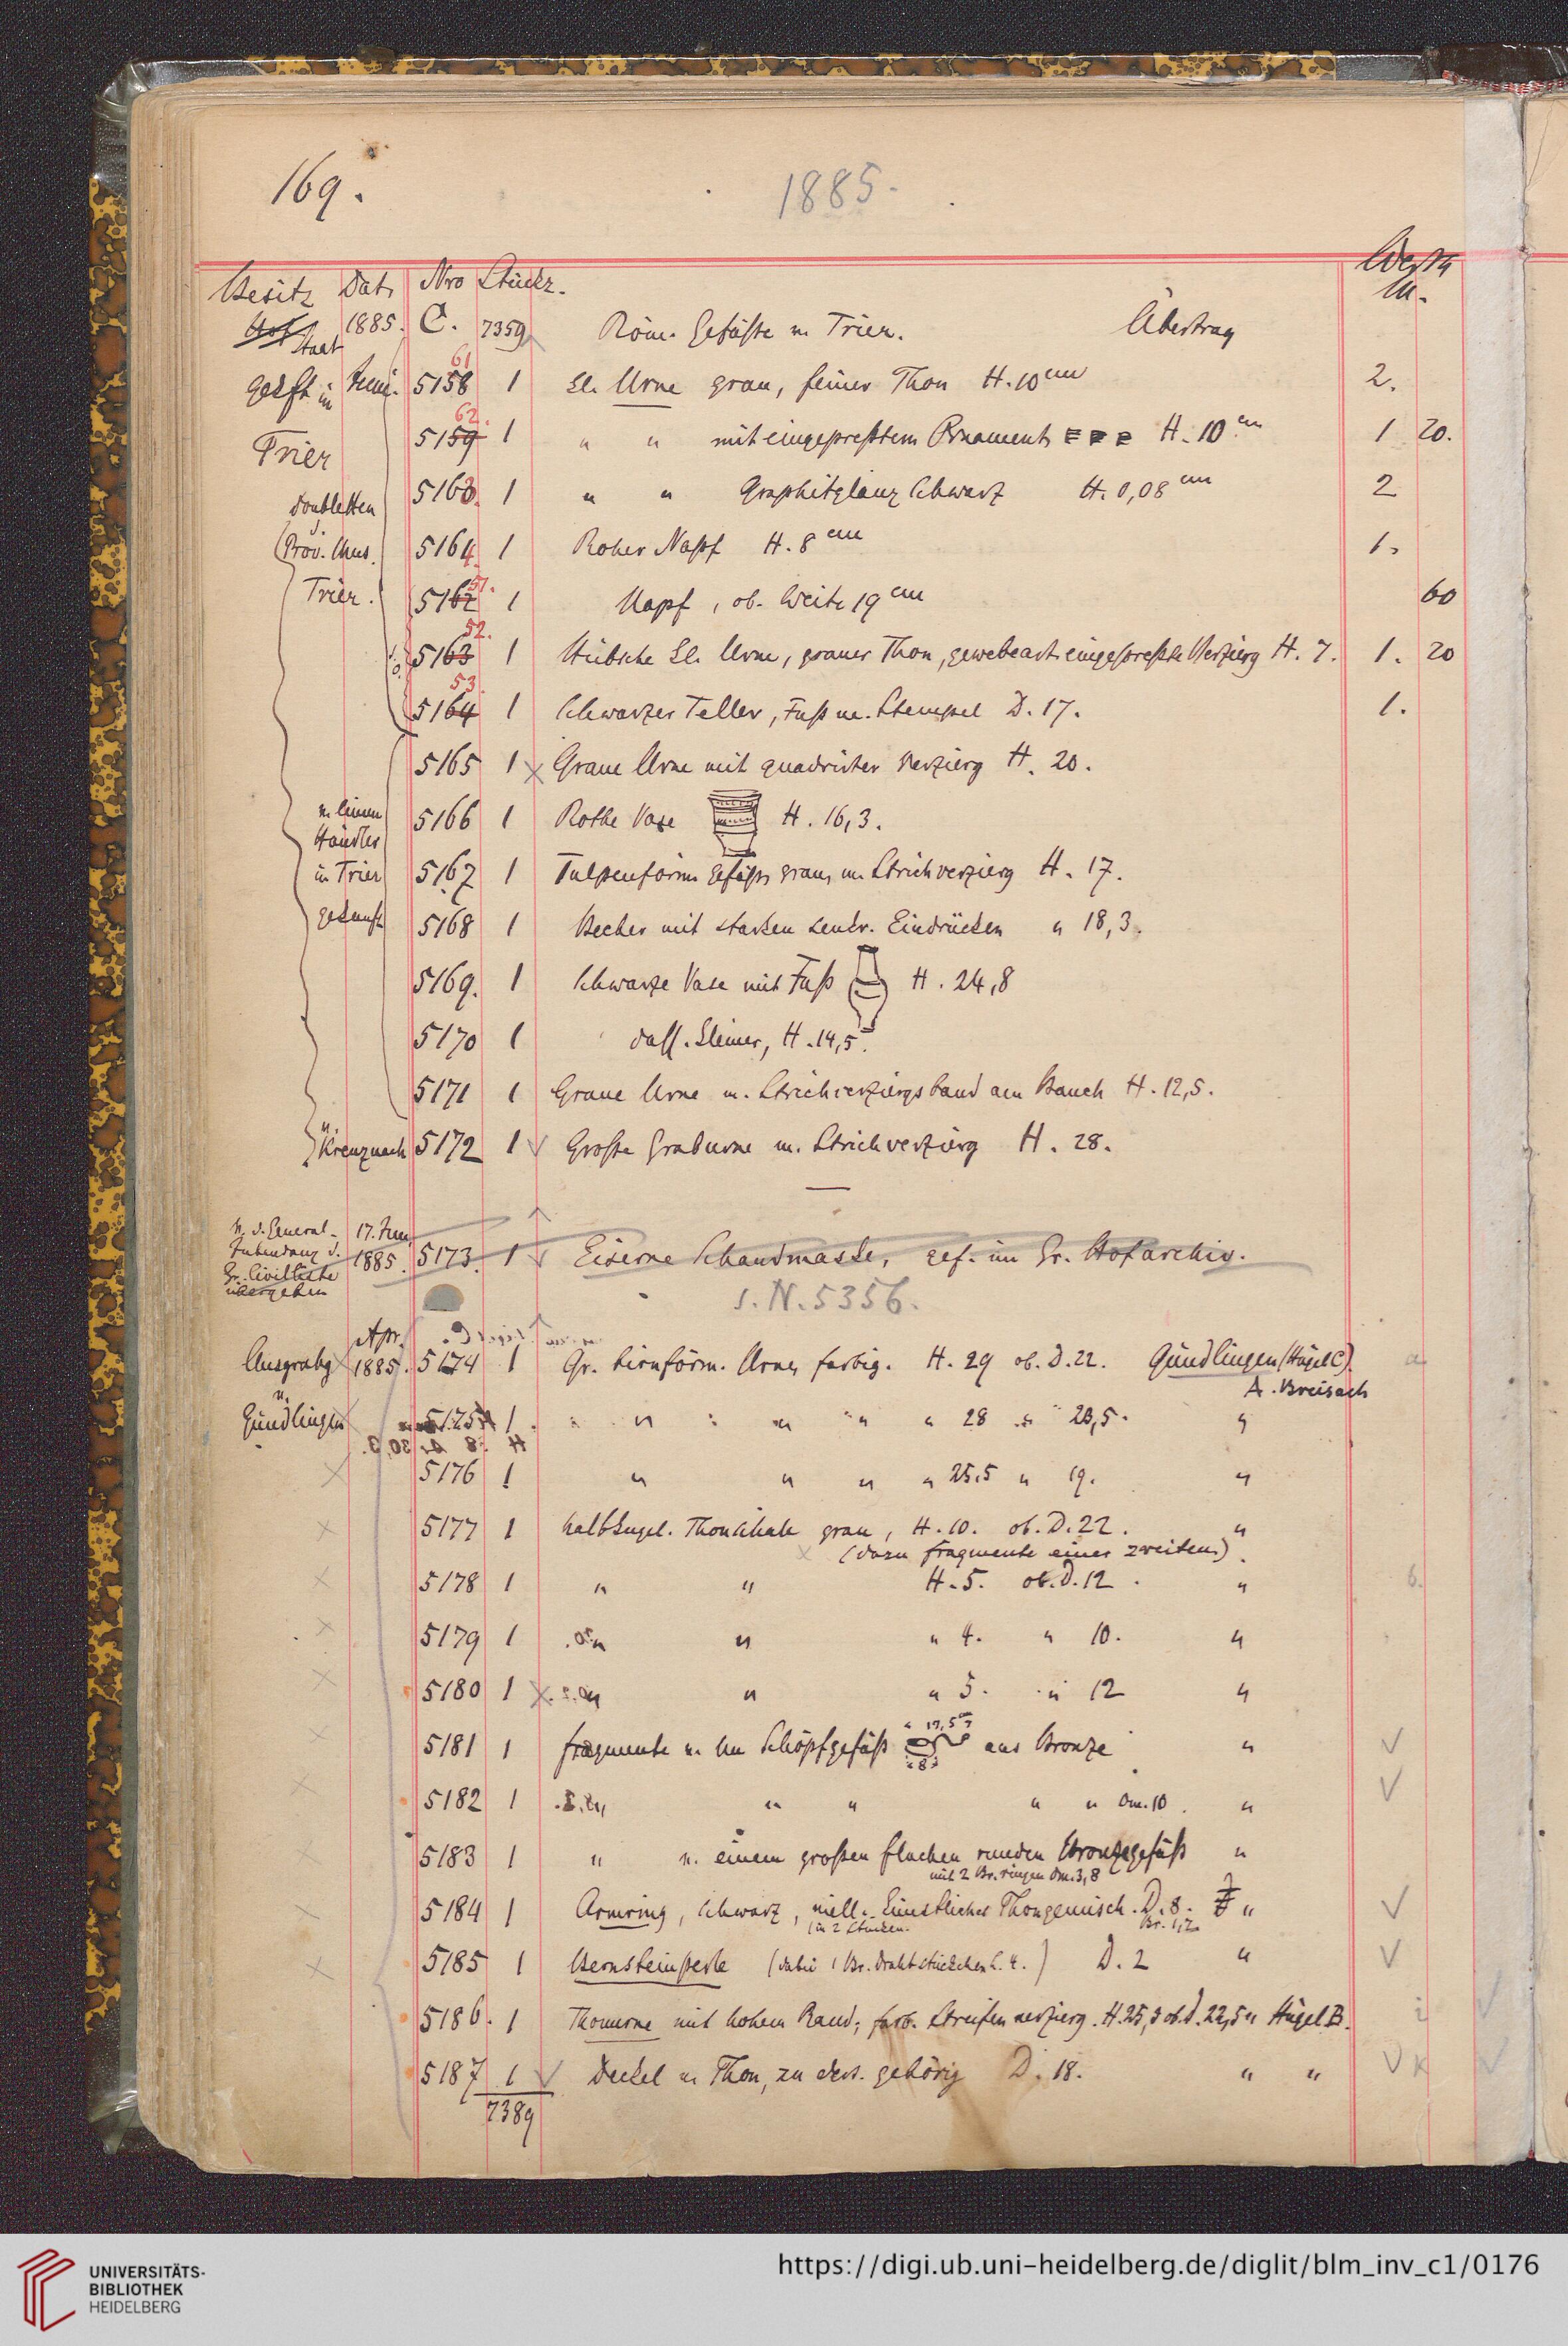 169.
1885.
Besitz Dat. Nro Stückz. Werth
M.
Staat 1885. C. 7359 Röm. Gefäße v. Trier. Übertrag
gekft in Juni. 5158 61 1 Kl. Urne grau, feiner Thon H. 10 cm 2.
Trier 5159 62. 1 " " mit eingepreßtem Ornament H. 10 cm 1 20.
Doubletten 5163. 1 " " Graphitglanz schwarz H. 0,08 cm 2
d. Prov. Mus. 5164 1 Roher Napf H. 8 cm 1.
Trier. 5162 51. 1 Napf, ob. Weite 19 cm 60
5163 52. 1 Hübsche Kl. Urne, grauer Thon, gewebeart. eingepreßte Verzierg H. 7. 1. 20
5164 53. 1 Schwarzer Teller, Fuß m. Stempel D. 17. 1.
5165 1 Graue Urne mit quadrirter Verzierg H. 20.
v. einem 5166 1 Rothe Vase H. 16,3.
Händler
in Trier 5167 1 Tulpenförm. Gefäß, grau, m. Strichverzierg H. 17.
gekauft 5168 1 Becher mit starken senkr. Eindrücken " 18,3.
5169. 1 Schwarze Vase mit Fuß H. 24,8
5170 1 dass. kleiner, H. 14,5.
5171 1 Graue Urne m. Strichverziergsband am Bauch H. 12,5.
v. Kreuznach 5172 1 Große Graburne m. Strichverzierg H. 28.
v. d. General- 17. Jun.
Intendanz d. 1885. 5173. 1 Eiserne Schandmaske, gef. im Gr. Hofarchiv.
Gr. Civilliste
übergeben
s. N. 5356.
Apr. C.
Ausgrabg 1885. 5174 1 Gr. birnförm. Urne, farbig. H. 29 ob. D. 22. Gündlingen (Hügel C) a
A. Breisach
v.
Gündlingen 5175 1 " " " " 28 " 23,5. "
5176 1 " " " " 25,5 " 19. "
5177 1 halbkugel. Thonschale grau, H. 10. ob. D. 22. "
(dazu Fragmente einer zweiten)
5178 1 " " H. 5. ob. D. 12. " b.
5179 1 " " " 4. " 10. "
5180 1 " " " 5. " 12 "
" 17,5
5181 1 Fragmente v. Schöpfgefäß aus Bronze "
8
5182 1 " " " " " Dm. 10. "
5183 1 " v. einem großen flachen runden Bronzegefäß "
mit 2 Br. ringen Dm. 3,8
5184 1 Armring, schwarz, viell. künstlicher Thongemisch. D. 8. "
(in 2 Stücken. Br. 1,7
5185 1 Bernsteinperle (dabei 1 Br. Drahtstückchen L. 4.) D. 2 "
5186. 1 Thonurne mit hohem Rand, farb. Streifenverzierg. H. 25,3 ob. D. 22,5 " Hügel B. i
5187 1 Deckel v. Thon, zu ders. gehörig D. 18. " " k
7389
UNIVERSITÄTS-
BIBLIOTHEK
HEIDELBERG
https://digi.ub.uni-heidelberg.de/diglit/blm_inv_c1/0176